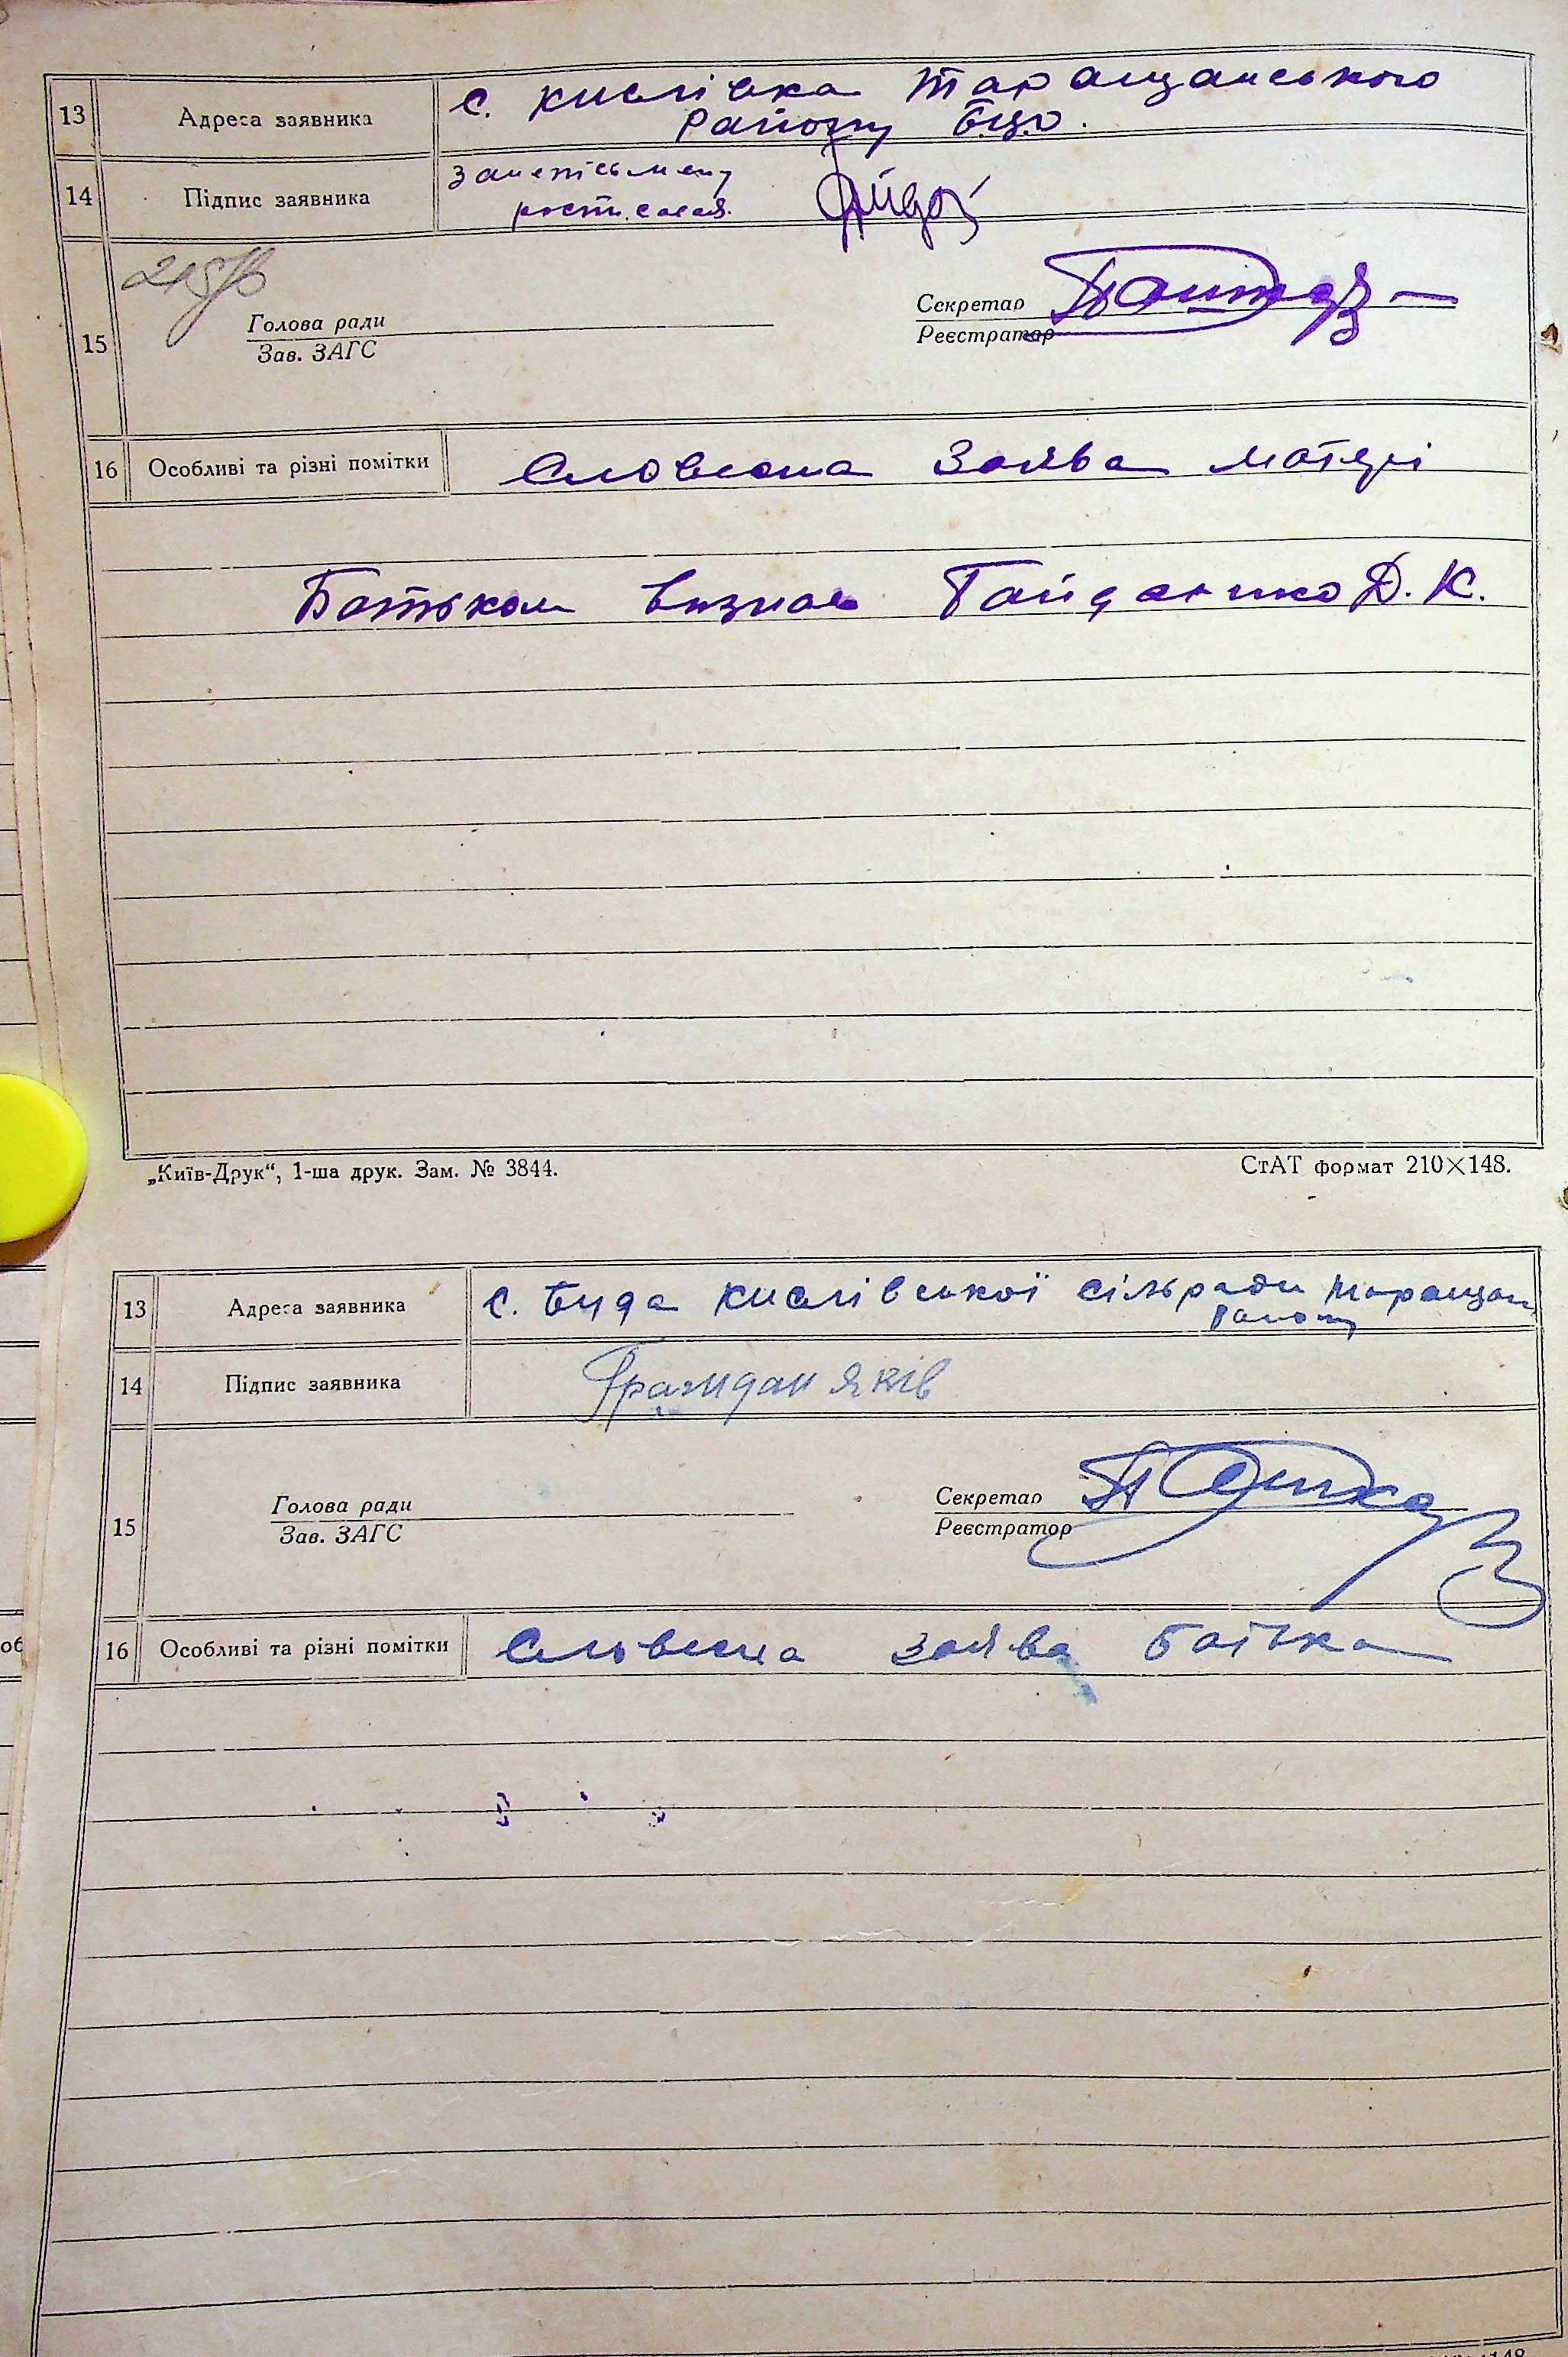 13 Адреса заявника с. Кислівка Таращанського
району Б.Ц.О.
14 Підпис заявника за неписьмену
росписался
15
Голова ради
Зав. ЗАГС
Секретар
Реєстратор
16 Особливі та різні помітки Словесна заява матері
Батьком визнав Гайденко Д. К.
„Київ-Друк“, 1-ша друк. Зам. № 3844. СтАТ формат 210×148.
13 Адреса заявника с. Буда Кислівської сільради Таращан.
району
14 Підпис заявника Граждан Яків
15
Голова ради
Зав. ЗАГС
Секретар
Реєстратор
16 Особливі та різні помітки Словесна заява батька